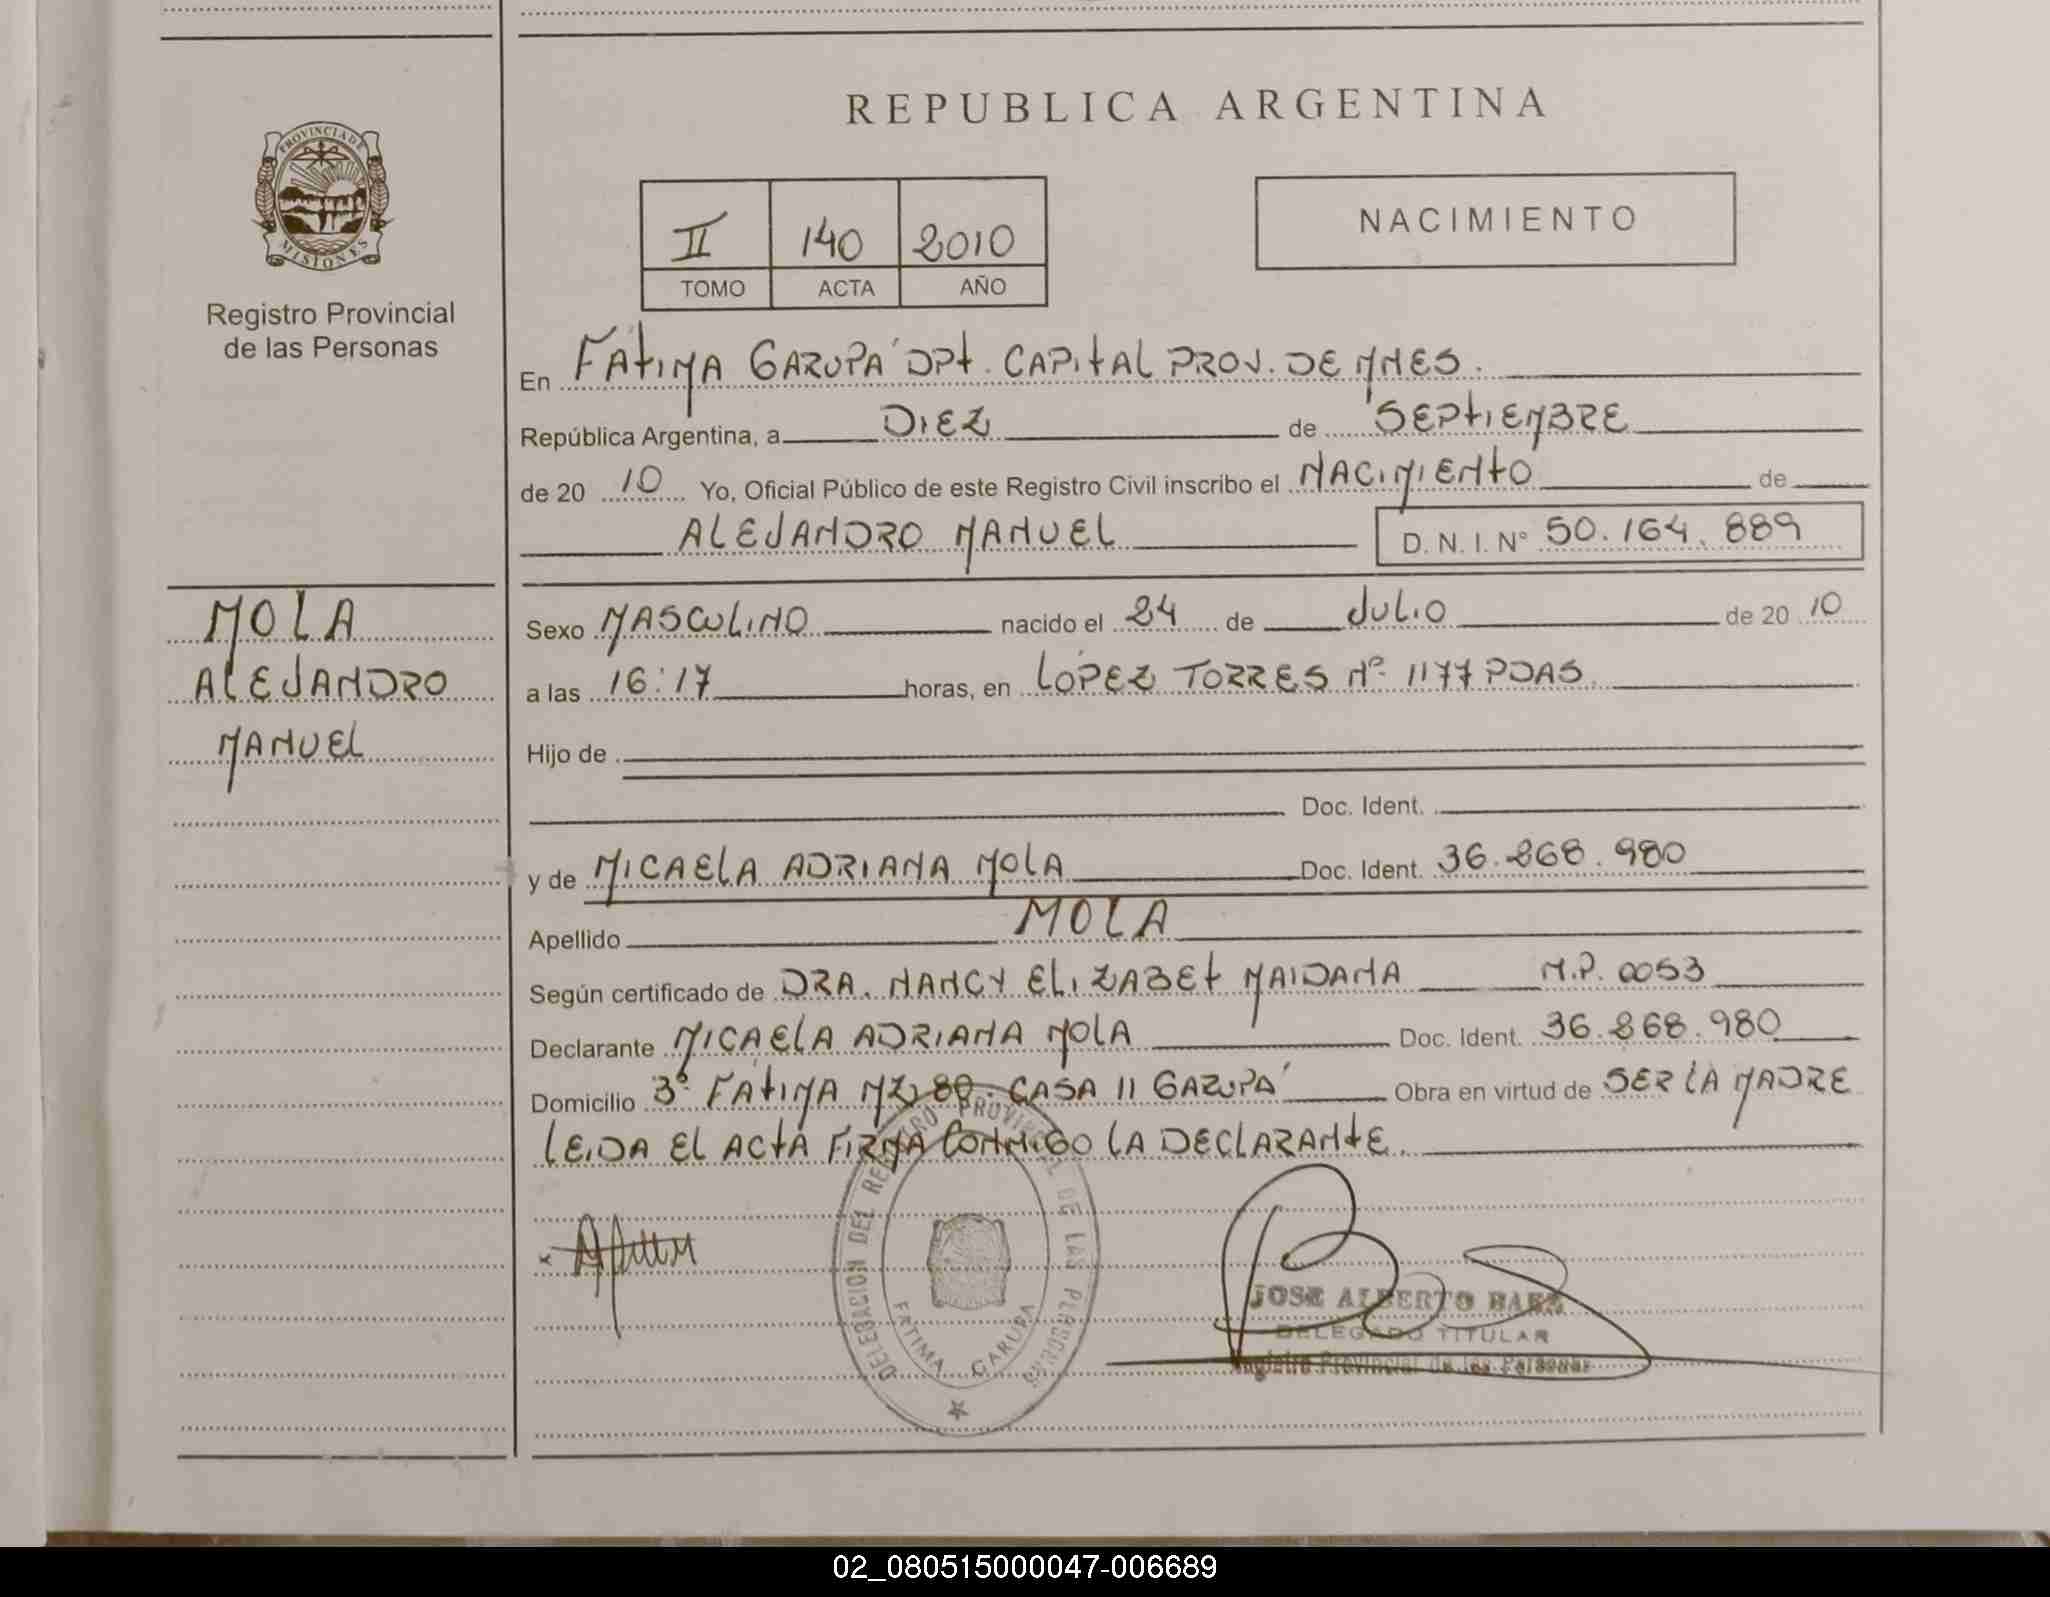 REPUBLICA ARGENTINA
PROVINCIA DE
MISIONES
Registro Provincial
de las Personas
II 140 2010
TOMO ACTA AÑO
NACIMIENTO
En FATIMA GARUPA' DPt. CAPITAL PROV. DE MNES.
República Argentina, a DIEZ de SEPTIEMBRE
de 20 10 Yo, Oficial Público de este Registro Civil inscribo el NACIMIENTO de
ALEJANDRO MANUEL D. N. I. N° 50.164.889
MOLA
ALEJANDRO
MANUEL
Sexo MASCULINO nacido el 24 de JULIO de 20 10
a las 16:17 horas, en LOPEZ TORRES Nº 1177 PDAS.
Hijo de
Doc. Ident.
y de MICAELA ADRIANA MOLA Doc. Ident. 36.268.980
Apellido MOLA
Según certificado de DRA. NANCY ELIZABET MAIDANA M.P. 0053
Declarante MICAELA ADRIANA MOLA Doc. Ident. 36.268.980
Domicilio 3º FATIMA MZ 80. CASA 11 GARUPA' Obra en virtud de SER LA MADRE
LEIDA EL ACTA FIRMA CONMIGO LA DECLARANTE.
DELEGACION DEL REGISTRO PROVINCIAL DE LAS PERSONAS
FATIMA GARUPA
JOSE ALBERTO BAEZ
DELEGADO TITULAR
Registro Provincial de las Personas
02_080515000047-006689